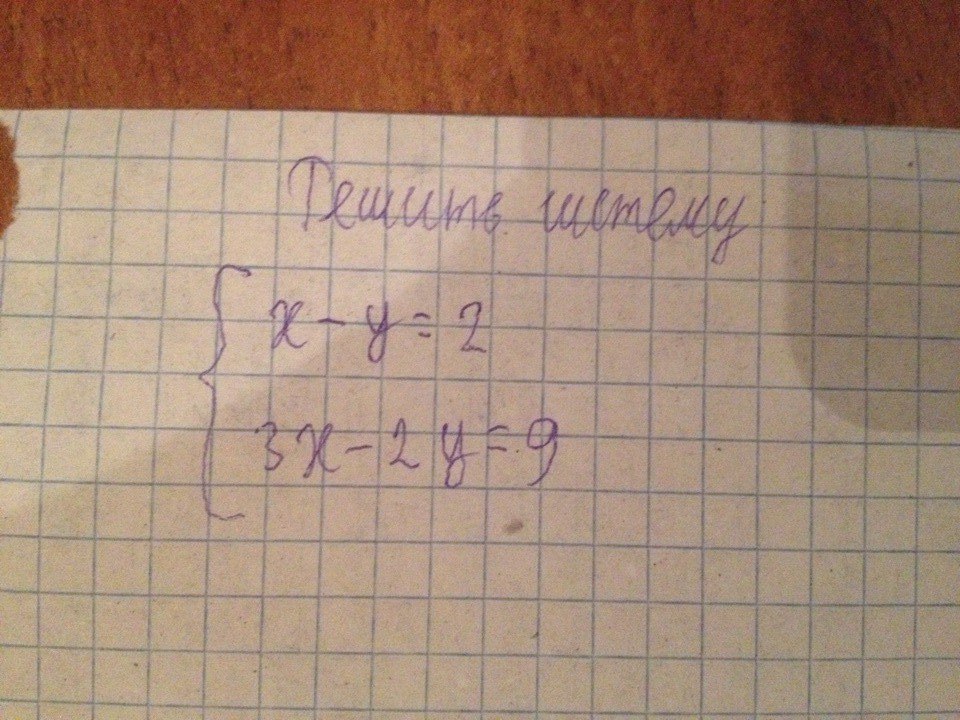 Решить систему
x - y = 2
3x - 2y = 9